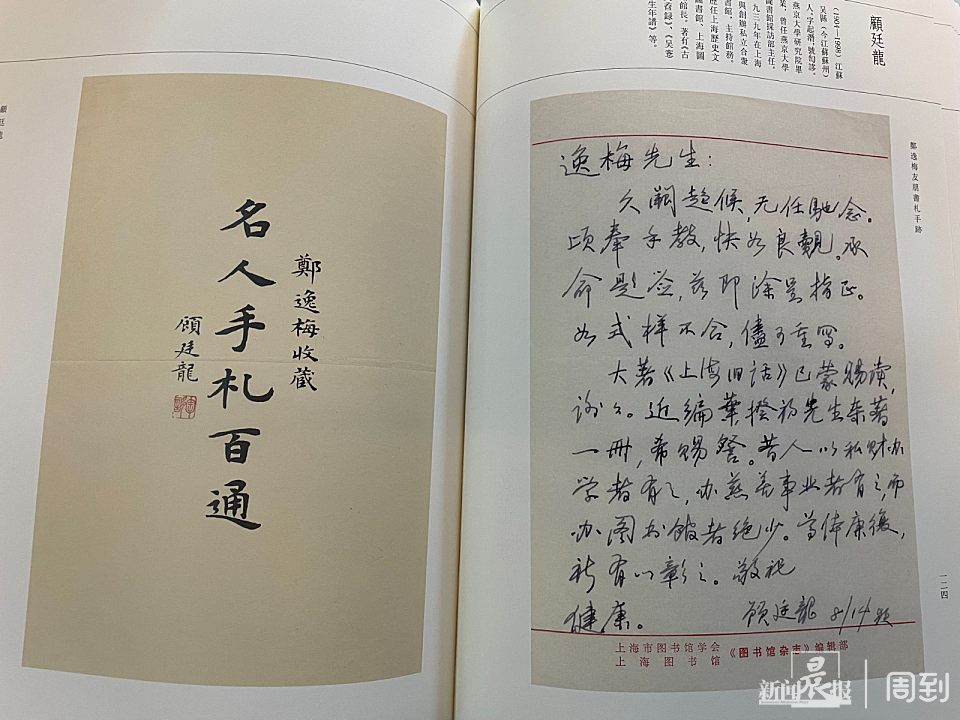 顧廷龍
(1904—1998)江蘇
吳縣（今江蘇蘇州）
人，字起潛，號匋誃。
燕京大學研究院畢
業，曾任燕京大學
圖書館採訪部主任。
九三九年在上海
與創辦私立合衆
書館，主持館務。
歷任上海歷史文
圖書館、上海圖
館長。著有《古
錄》、《吳愙
生年譜》等。
鄭逸梅友朋書札手跡
逸梅先生：
久闕趨候，无任馳念。
頃奉手教，快如良覿。承
命題簽，兹即塗呈指正。
如式样不合，儘可重写。
大著《上海旧话》已蒙赐读，
谢谢。近編葉揆初先生杂著
一冊，希賜詧。昔人以私财办
学者有之，办慈善事业者有之，而
办图书馆者绝少。尊体康復，
祈有以彰之。敬祝
健康。
顾廷龍 8/14 頓
上海市图书馆学会
上海图书馆
《图书馆杂志》编辑部
一二四
鄭逸梅收藏
名人手札百通
顾廷龍
顧廷龍
新闻晨报 周到